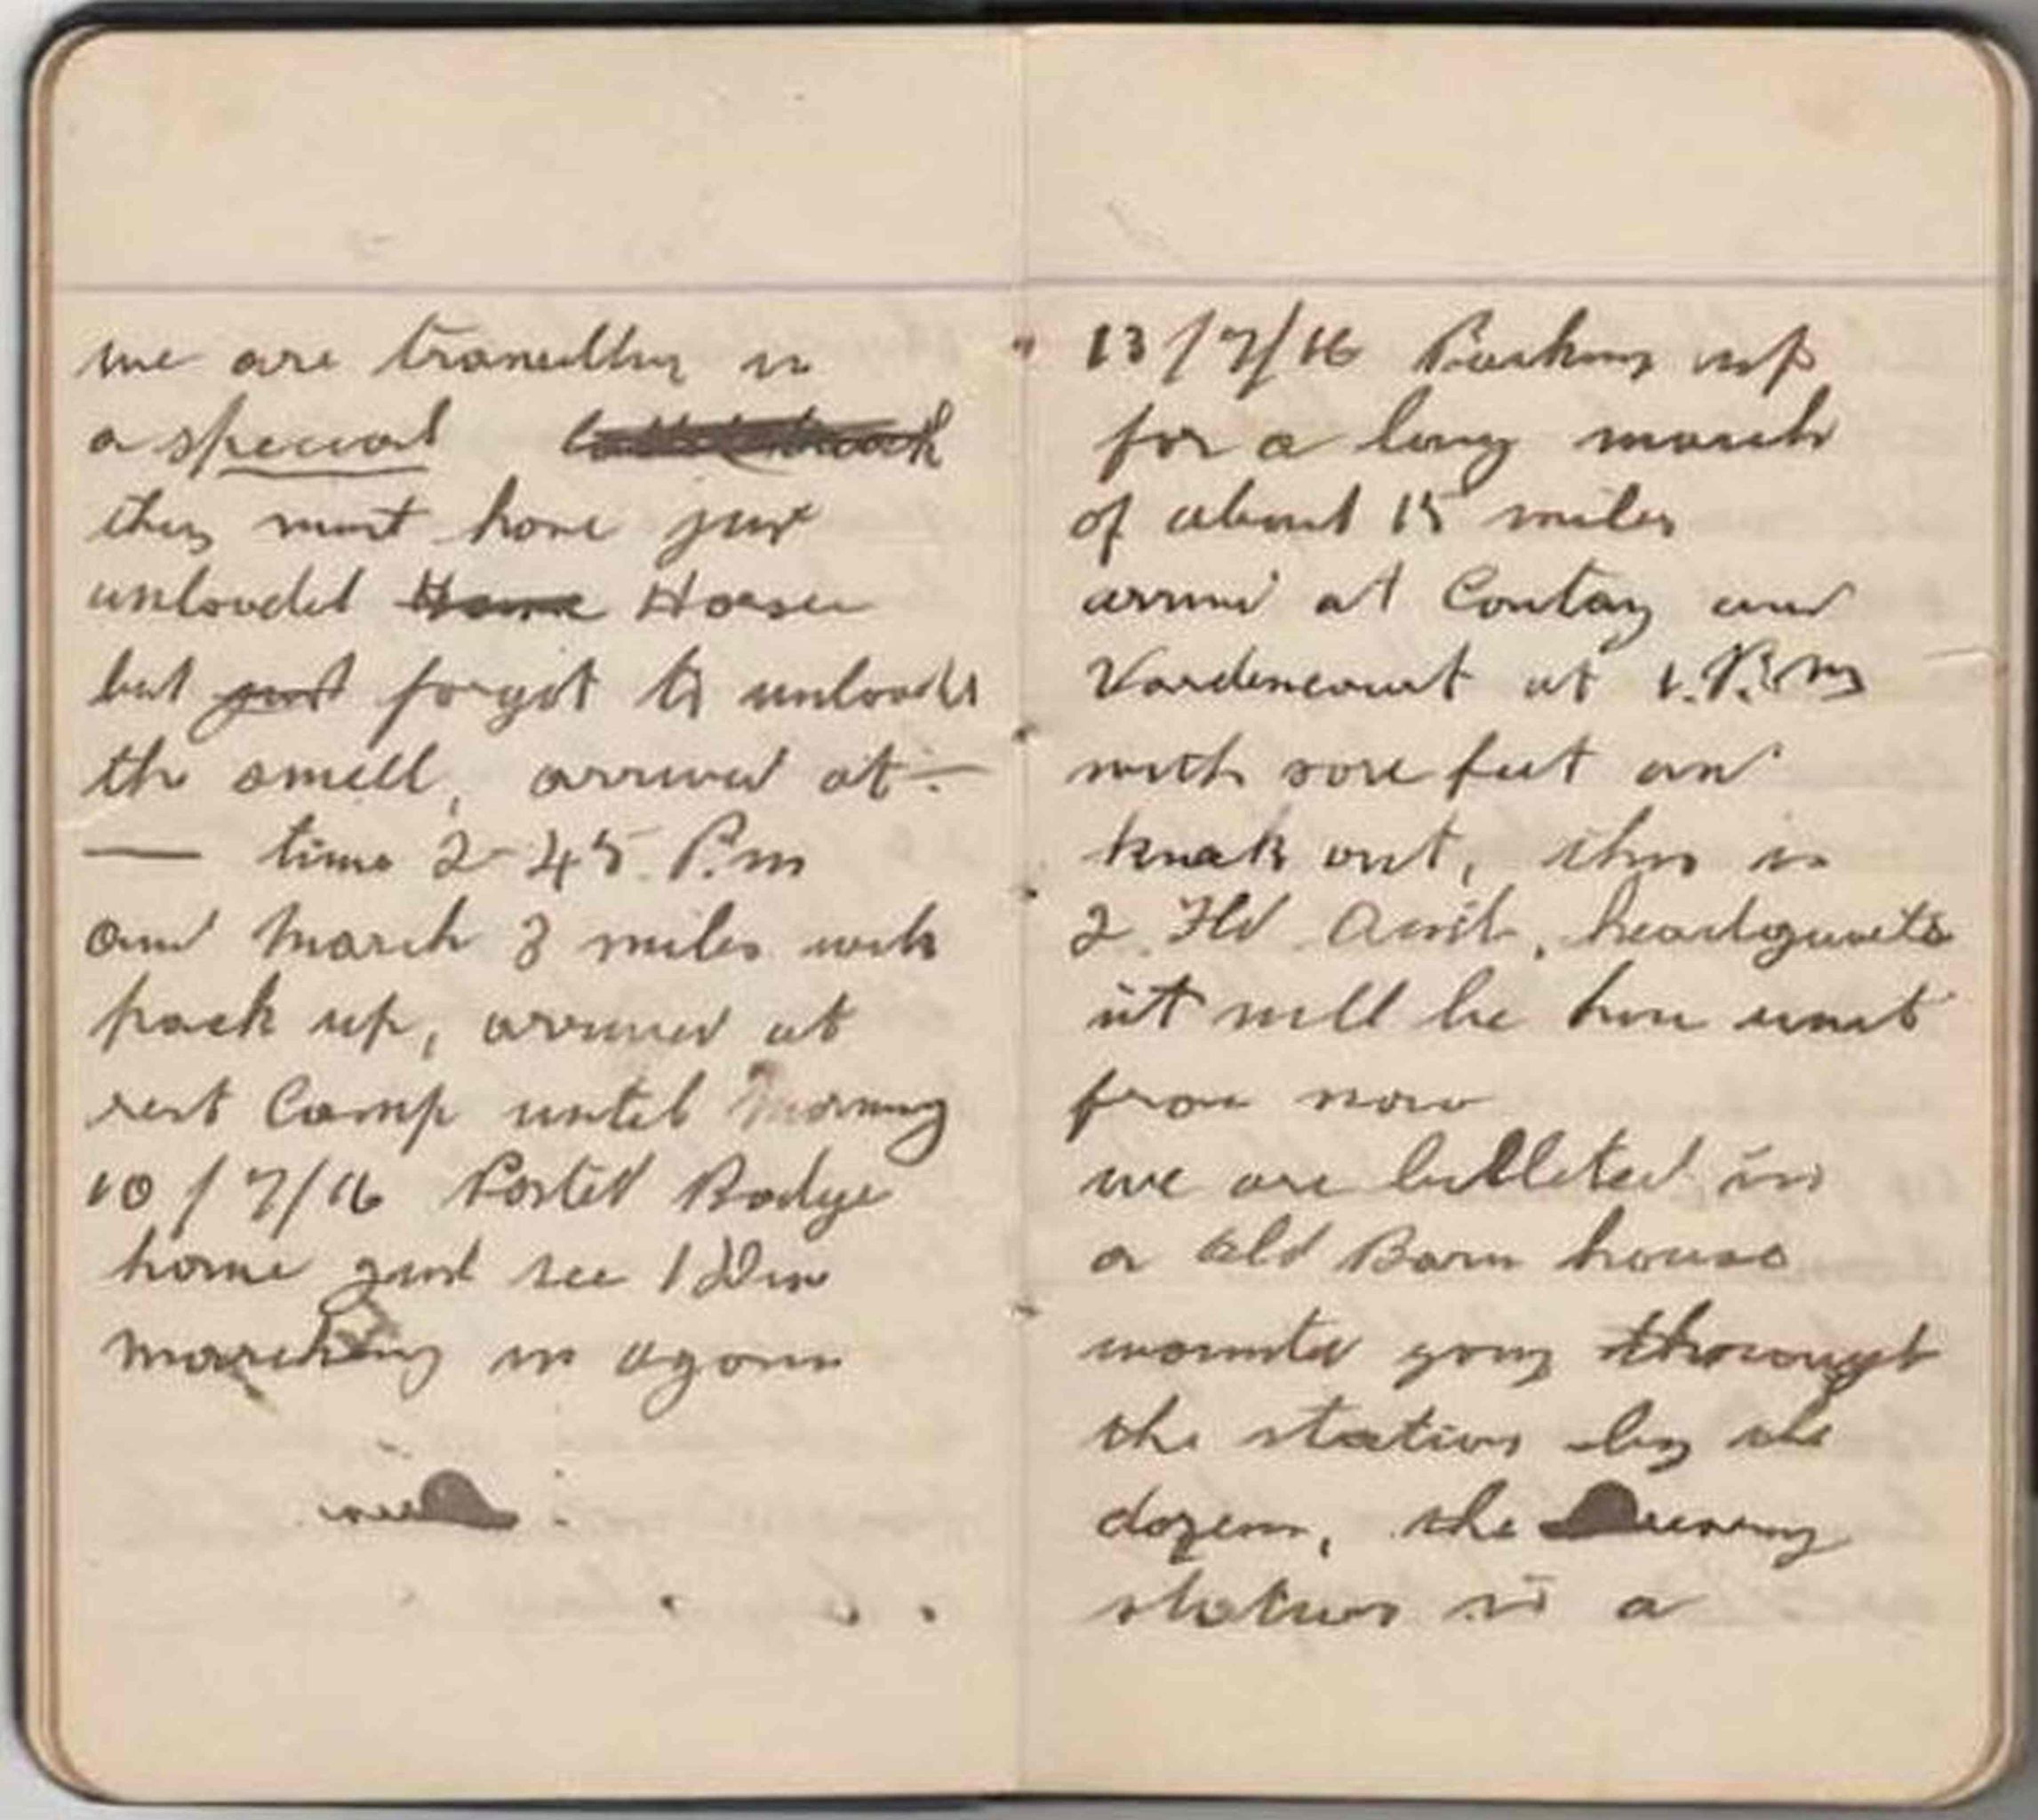 we are travelling in
a special
they must have just
unloaded Home Horses
but just forgot to unload
the smell, arrived at —
— time 2-45. P.m
and March 3 miles with
pack up, arrived at
rest Camp until Morning
10/7/16 Posted Badge
home just see 1 Div
marching in again
13/7/16 Packing up
for a long march
of about 15 miles
arrived at Contay and
Vardencourt at 1.P.m
with sore feet and
knock out, this is
2 Fld Amb, headquarters
it will be him unit
from now
we are billeted in
a old Barn house
wounded going throught
the station by the
dozens, the
station is a